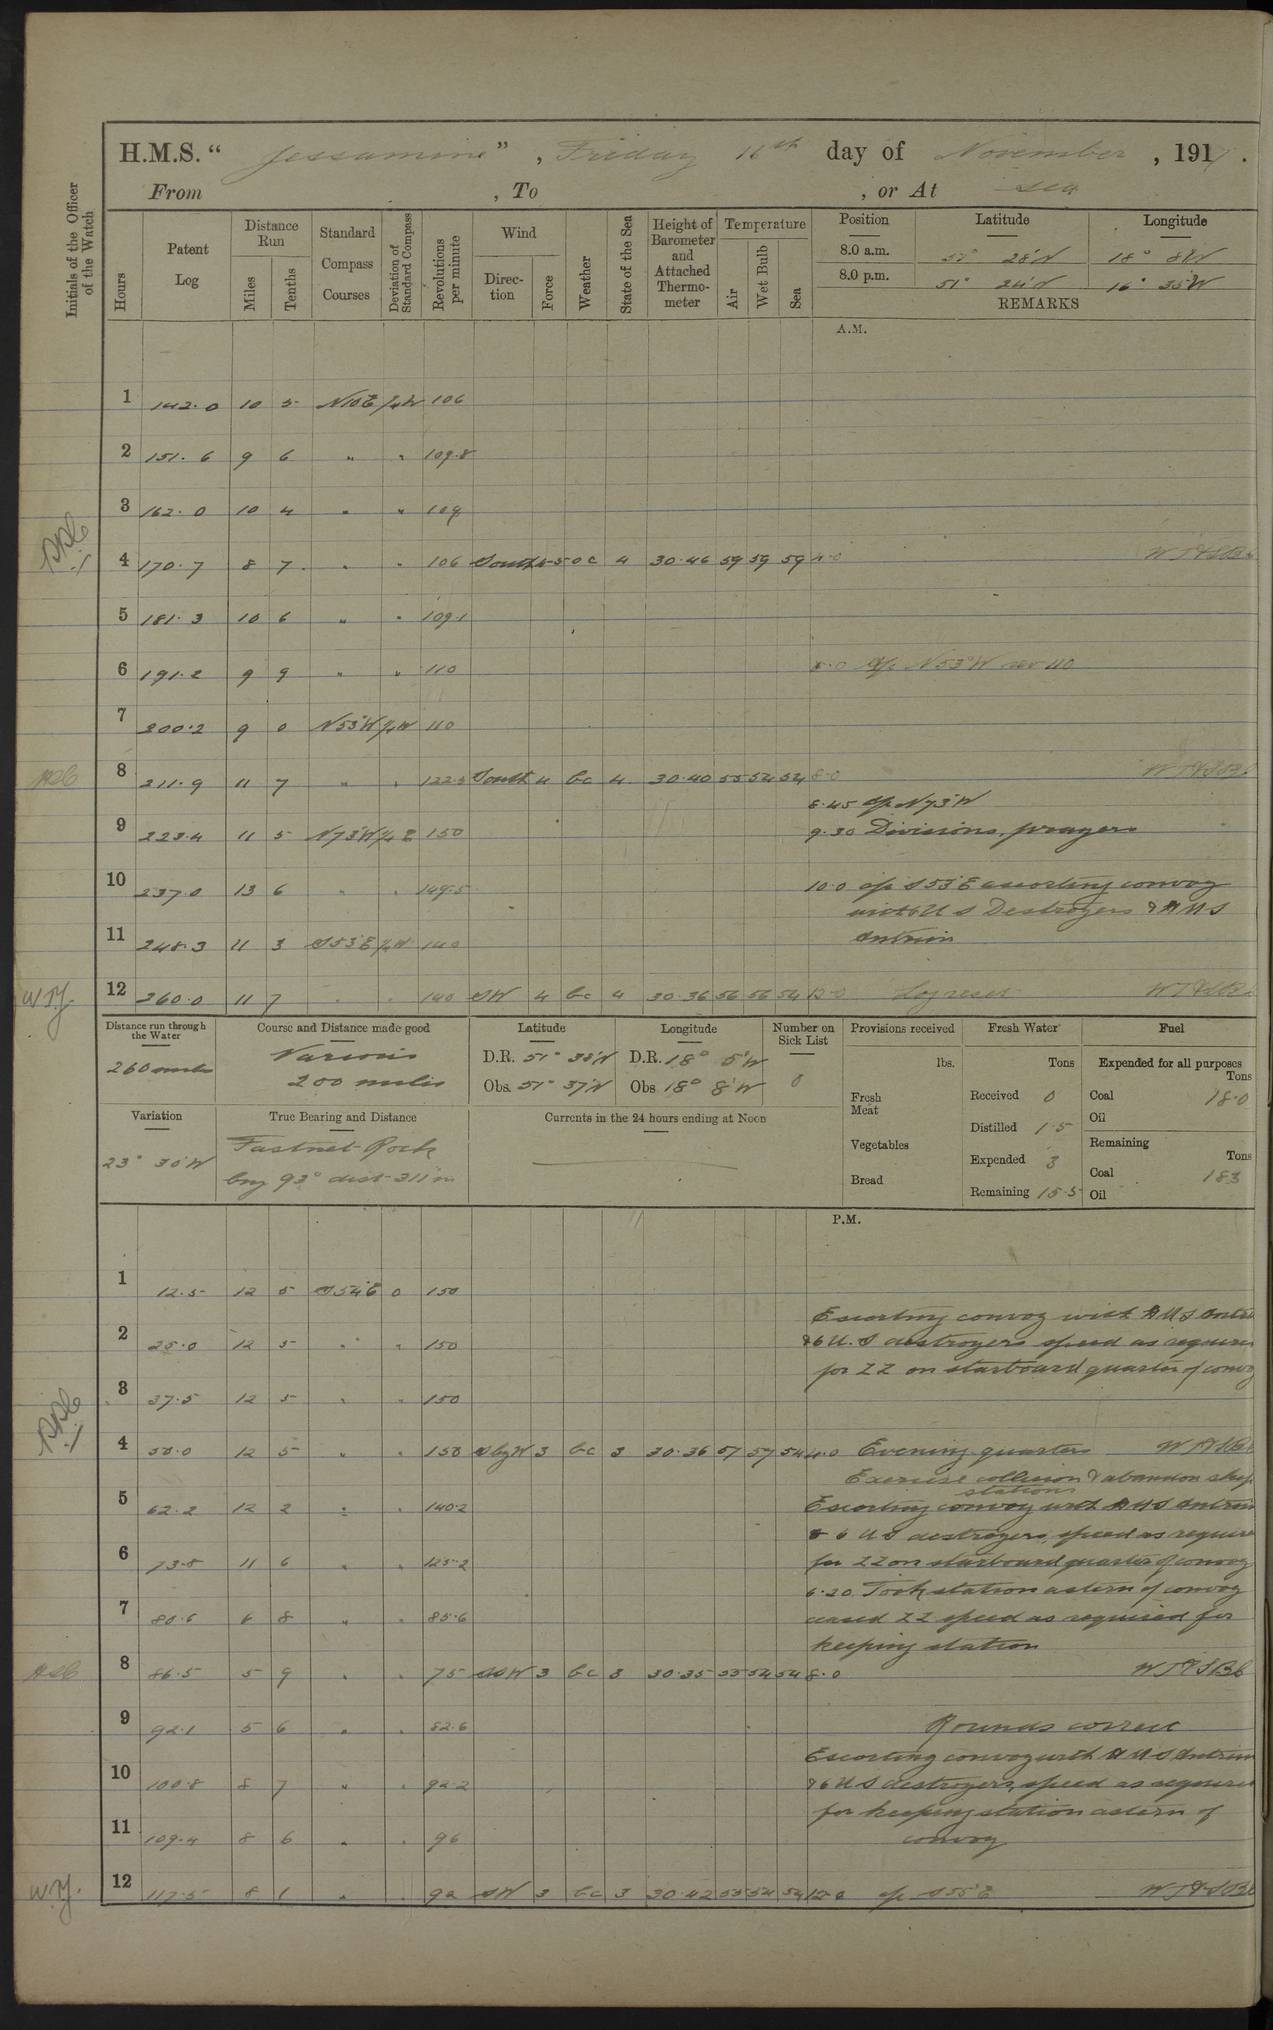 H.M.S. “ Jessamine ” , Friday 16th day of November , 1917 .
From , To , or At Sea
Initials of the Officer of the Watch
Hours
Patent Log
Distance Run
Miles
Tenths
Standard Compass Courses
Deviation of Standard Compass
Revolutions per minute
Wind
Direction
Force
Weather
State of the Sea
Height of Barometer and Attached Thermometer
Temperature
Air
Wet Bulb
Sea
Position Latitude Longitude
8.0 a.m. 28'N 18° 8'W
8.0 p.m. 51° 24'N 16° 35'W
REMARKS
A.M.
1 142.0 10 5 N10E 106
2 151.6 9 6 " " 109.8
3 162.0 10 4 " " 109
4 170.7 8 7 " " 106 South 4-5 oc 4 30.46 59 59 59 4.0
5 181.3 10 6 " " 109.1
6 191.2 9 9 " " 110 a/c N53°W rev 110
7 200.2 9 0 N53°W 110
8 211.9 11 7 " " 122.5 South 4 bc 4 30.40 55 54 54 8.0
8.45 a/c N73°W
9 223.4 11 5 N73°W 150 9.30 Divisions, prayers
10 237.0 13 6 " " 149.5 10.0 a/c S53°E escorting convoy
with U S Destroyers & HMS
11 248.3 11 3 S53°E 140 Antrim
12 260.0 11 7 " " 140 SW 4 bc 4 30.36 56 56 54 12.0 Log reset
Distance run through the Water
260 miles
Course and Distance made good
Various
200 miles
Latitude
D.R. 51° 38'N
Obs. 51° 37'N
Longitude
D.R. 18° 5'W
Obs 18° 8'W
Number on Sick List
0
Provisions received
lbs.
Fresh Meat
Vegetables
Bread
Fresh Water
Tons
Received 0
Distilled 1.5
Expended 3
Remaining 15.5
Fuel
Expended for all purposes
Tons
Coal 18.0
Oil
Remaining
Tons
Coal 183
Oil
Variation
23° 30'W
True Bearing and Distance
Fastnet Rock
brg 93° dist 311 m
Currents in the 24 hours ending at Noon
P.M.
1 12.5 12 5 S54°E 0 150
Escorting convoy with HMS Antrim
2 25.0 12 5 " " 150 & 6 U.S destroyers speed as require
for ZZ on starboard quarter of convoy
3 37.5 12 5 " " 150
4 50.0 12 5 " " 150 SbyW 3 bc 3 30.36 57 57 54 4.0 Evening quarters
Exercise collision & abandon ship
stations
5 62.2 12 2 " " 140.2 Escorting convoy with HMS Antrim
& 6 U S destroyers, speed as require
6 73.8 11 6 " " 125.2 for ZZ on starboard quarter of convoy
6.20 Took station astern of convoy
7 80.6 6 8 " " 85.6 ceased ZZ speed as required for
keeping station
8 86.5 5 9 " " 75 SSW 3 bc 3 30.35 55 54 54 8.0
9 92.1 5 6 " " 82.6 Rounds correct
Escorting convoy with HMS Antrim
10 100.8 8 7 " " 92.2 & 6 U S destroyers, speed as require
for keeping station astern of
11 109.4 8 6 " " 96 convoy
12 117.5 8 1 " " 92 SW 3 bc 3 30.42 55 54 54 12.0 a/c S55°E